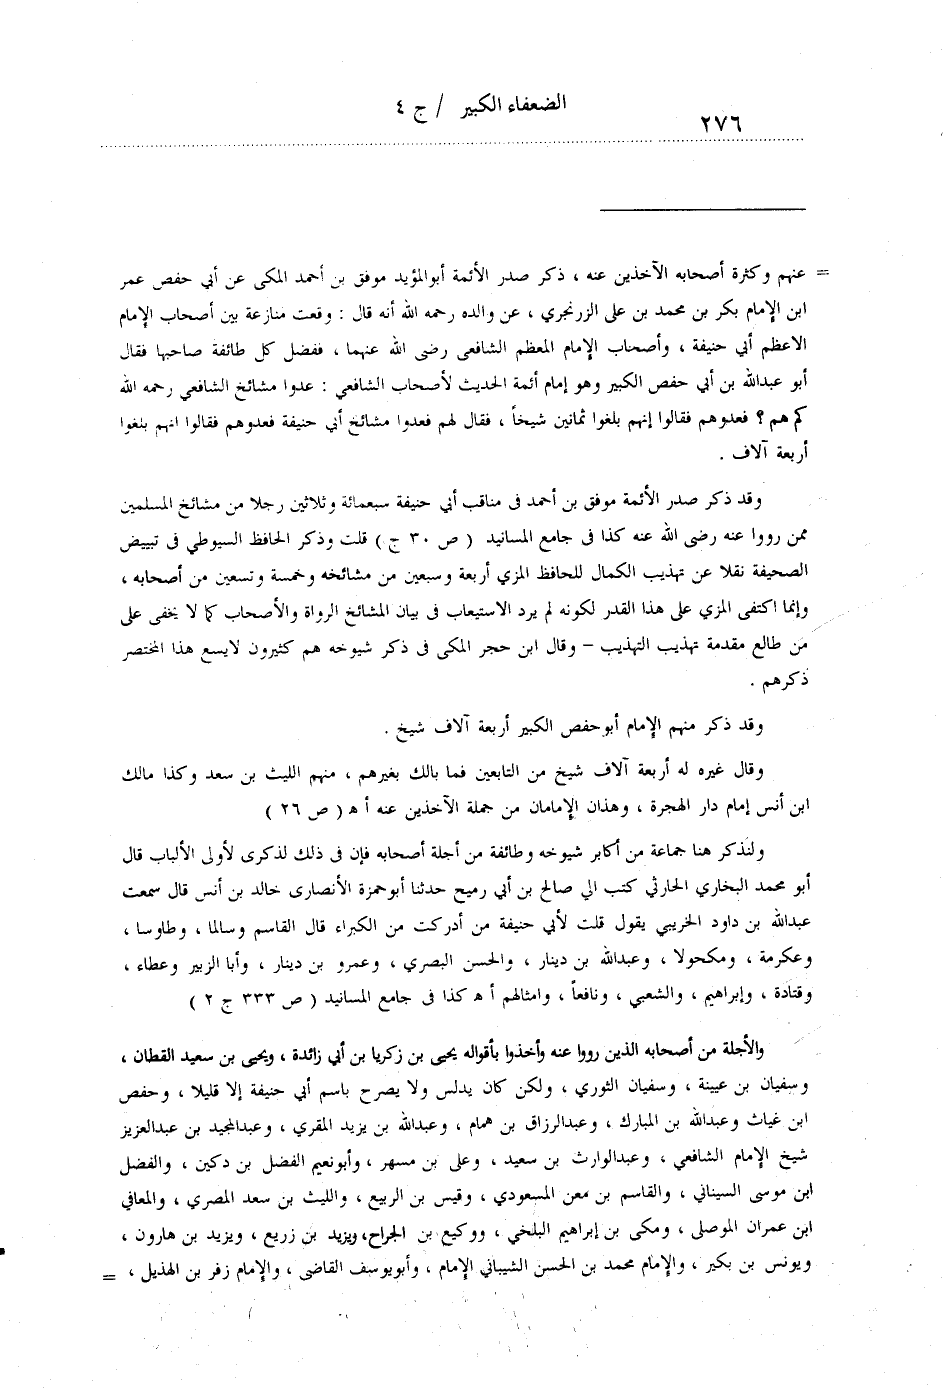 الضعفاء الكبير / ج ٤
٢٧٦
= عنهم وكثرة أصحابه الآخذين عنه ، ذكر صدر الأئمة أبوالمؤيد موفق بن أحمد المكى عن أبي حفص عمر
ابن الإمام بكر بن محمد بن على الزرنجري ، عن والده رحمه الله أنه قال : وقعت منازعة بين أصحاب الإمام
الاعظم أبي حنيفة ، وأصحاب الإمام المعظم الشافعى رضى الله عنهما ، ففضل كل طائفة صاحبها فقال
أبو عبدالله بن أبي حفص الكبير وهو إمام أئمة الحديث لأصحاب الشافعي : عدوا مشائخ الشافعي رحمه الله
كم هم ؟ فعدوهم فقالوا إنهم بلغوا ثمانين شيخاً ، فقال لهم فعدوا مشائخ أبي حنيفة فعدوهم فقالوا انهم بلغوا
أربعة آلاف .
وقد ذكر صدر الأئمة موفق بن أحمد فى مناقب أبي حنيفة سبعمائة وثلاثين رجلا من مشائخ المسلمين
ممن رووا عنه رضى الله عنه كذا فى جامع المسانيد ( ص ٣٠ ج ) قلت وذكر الحافظ السيوطي فى تبييض
الصحيفة نقلا عن تهذيب الكمال للحافظ المزي أربعة وسبعين من مشائخه وخمسة وتسعين من أصحابه ،
وإنما اكتفى المزي على هذا القدر لكونه لم يرد الاستيعاب فى بيان المشائخ الرواة والأصحاب كما لا يخفى على
من طالع مقدمة تهذيب التهذيب – وقال ابن حجر المكى فى ذكر شيوخه هم كثيرون لايسع هذا المختصر
ذكرهم .
وقد ذكر منهم الإمام أبوحفص الكبير أربعة آلاف شيخ .
وقال غيره له أربعة آلاف شيخ من التابعين فما بالك بغيرهم ، منهم الليث بن سعد وكذا مالك
ابن أنس إمام دار الهجرة ، وهذان الإمامان من جملة الآخذين عنه أ ه ( ص ٢٦ )
ولنذكر هنا جماعة من أكابر شيوخه وطائفة من أجلة أصحابه فإن فى ذلك لذكرى لأولى الألباب قال
أبو محمد البخاري الحارثي كتب الي صالح بن أبي رميح حدثنا أبوحمزة الأنصارى خالد بن أنس قال سمعت
عبدالله بن داود الخريبي يقول قلت لأبي حنيفة من أدركت من الكبراء قال القاسم وسالما ، وطاوسا ،
وعكرمة ، ومكحولا ، وعبدالله بن دينار ، والحسن البصري ، وعمرو بن دينار ، وأبا الزبير وعطاء ،
وقتادة ، وإبراهيم ، والشعبي ، ونافعاً ، وامثالهم أ ه كذا فى جامع المسانيد ( ص ٣٣٣ ج ٢ )
والأجلة من أصحابه الذين رووا عنه وأخذوا بأقواله يحيى بن زكريا بن أبي زائدة ، ويحيى بن سعيد القطان ،
وسفيان بن عيينة ، وسفيان الثوري ، ولكن كان يدلس ولا يصرح باسم أبي حنيفة إلا قليلا ، وحفص
ابن غياث وعبدالله بن المبارك ، وعبدالرزاق بن همام ، وعبدالله بن يزيد المقري ، وعبدالمجيد بن عبدالعزيز
شيخ الإمام الشافعي ، وعبدالوارث بن سعيد ، وعلى بن مسهر ، وأبونعيم الفضل بن دكين ، والفضل
ابن موسى السيناني ، والقاسم بن معن المسعودي ، وقيس بن الربيع ، والليث بن سعد المصري ، والمعافي
ابن عمران الموصلى ، ومكى بن إبراهيم البلخي ، ووكيع بن الجراح، ويزيد بن زريع ، ويزيد بن هارون ،
ويونس بن بكير ، والإمام محمد بن الحسن الشيباني الإمام ، وأبويوسف القاضى ، والإمام زفر بن الهذيل ، =